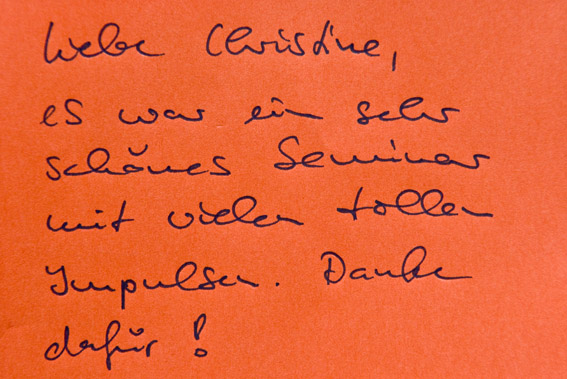 Liebe Christine,
es war ein sehr
schönes Seminar
mit vielen tollen
Impulsen. Danke
dafür!